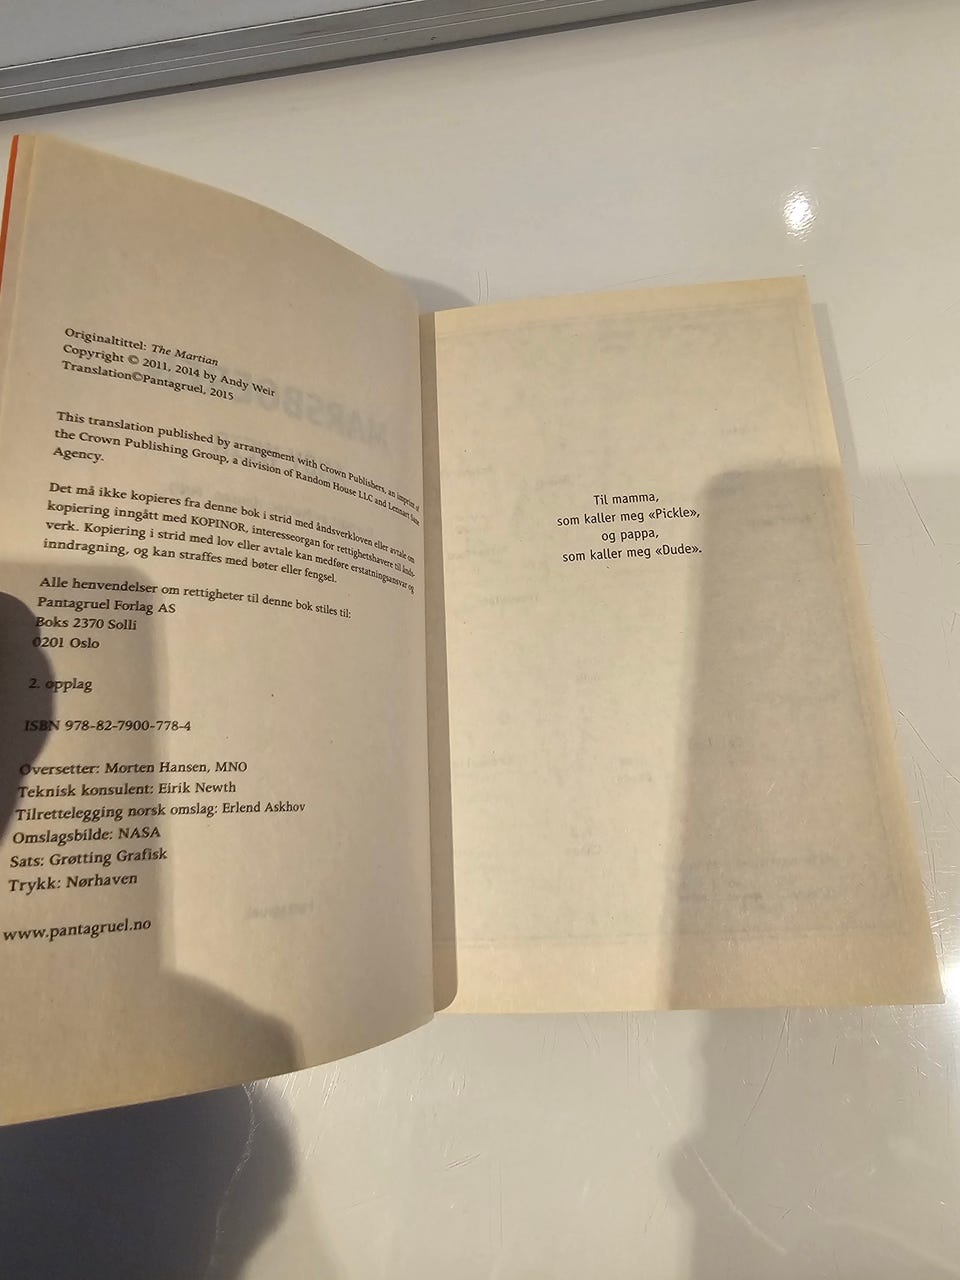 Originaltittel: The Martian
Copyright © 2011, 2014 by Andy Weir
Translation©Pantagruel, 2015
This translation published by arrangement with Crown Publishers, an imprint of
the Crown Publishing Group, a division of Random House LLC and Lennart Sane
Agency.
Det må ikke kopieres fra denne bok i strid med åndsverkloven eller avtale om
kopiering inngått med KOPINOR, interesseorgan for rettighetshavere til åndsverk.
verk. Kopiering i strid med lov eller avtale kan medføre erstatningsansvar og
inndragning, og kan straffes med bøter eller fengsel.
Alle henvendelser om rettigheter til denne bok stiles til:
Pantagruel Forlag AS
Boks 2370 Solli
0201 Oslo
2. opplag
ISBN 978-82-7900-778-4
Oversetter: Morten Hansen, MNO
Teknisk konsulent: Eirik Newth
Tilrettelegging norsk omslag: Erlend Askhov
Omslagsbilde: NASA
Sats: Grøtting Grafisk
Trykk: Nørhaven
www.pantagruel.no
Til mamma,
som kaller meg «Pickle»,
og pappa,
som kaller meg «Dude».